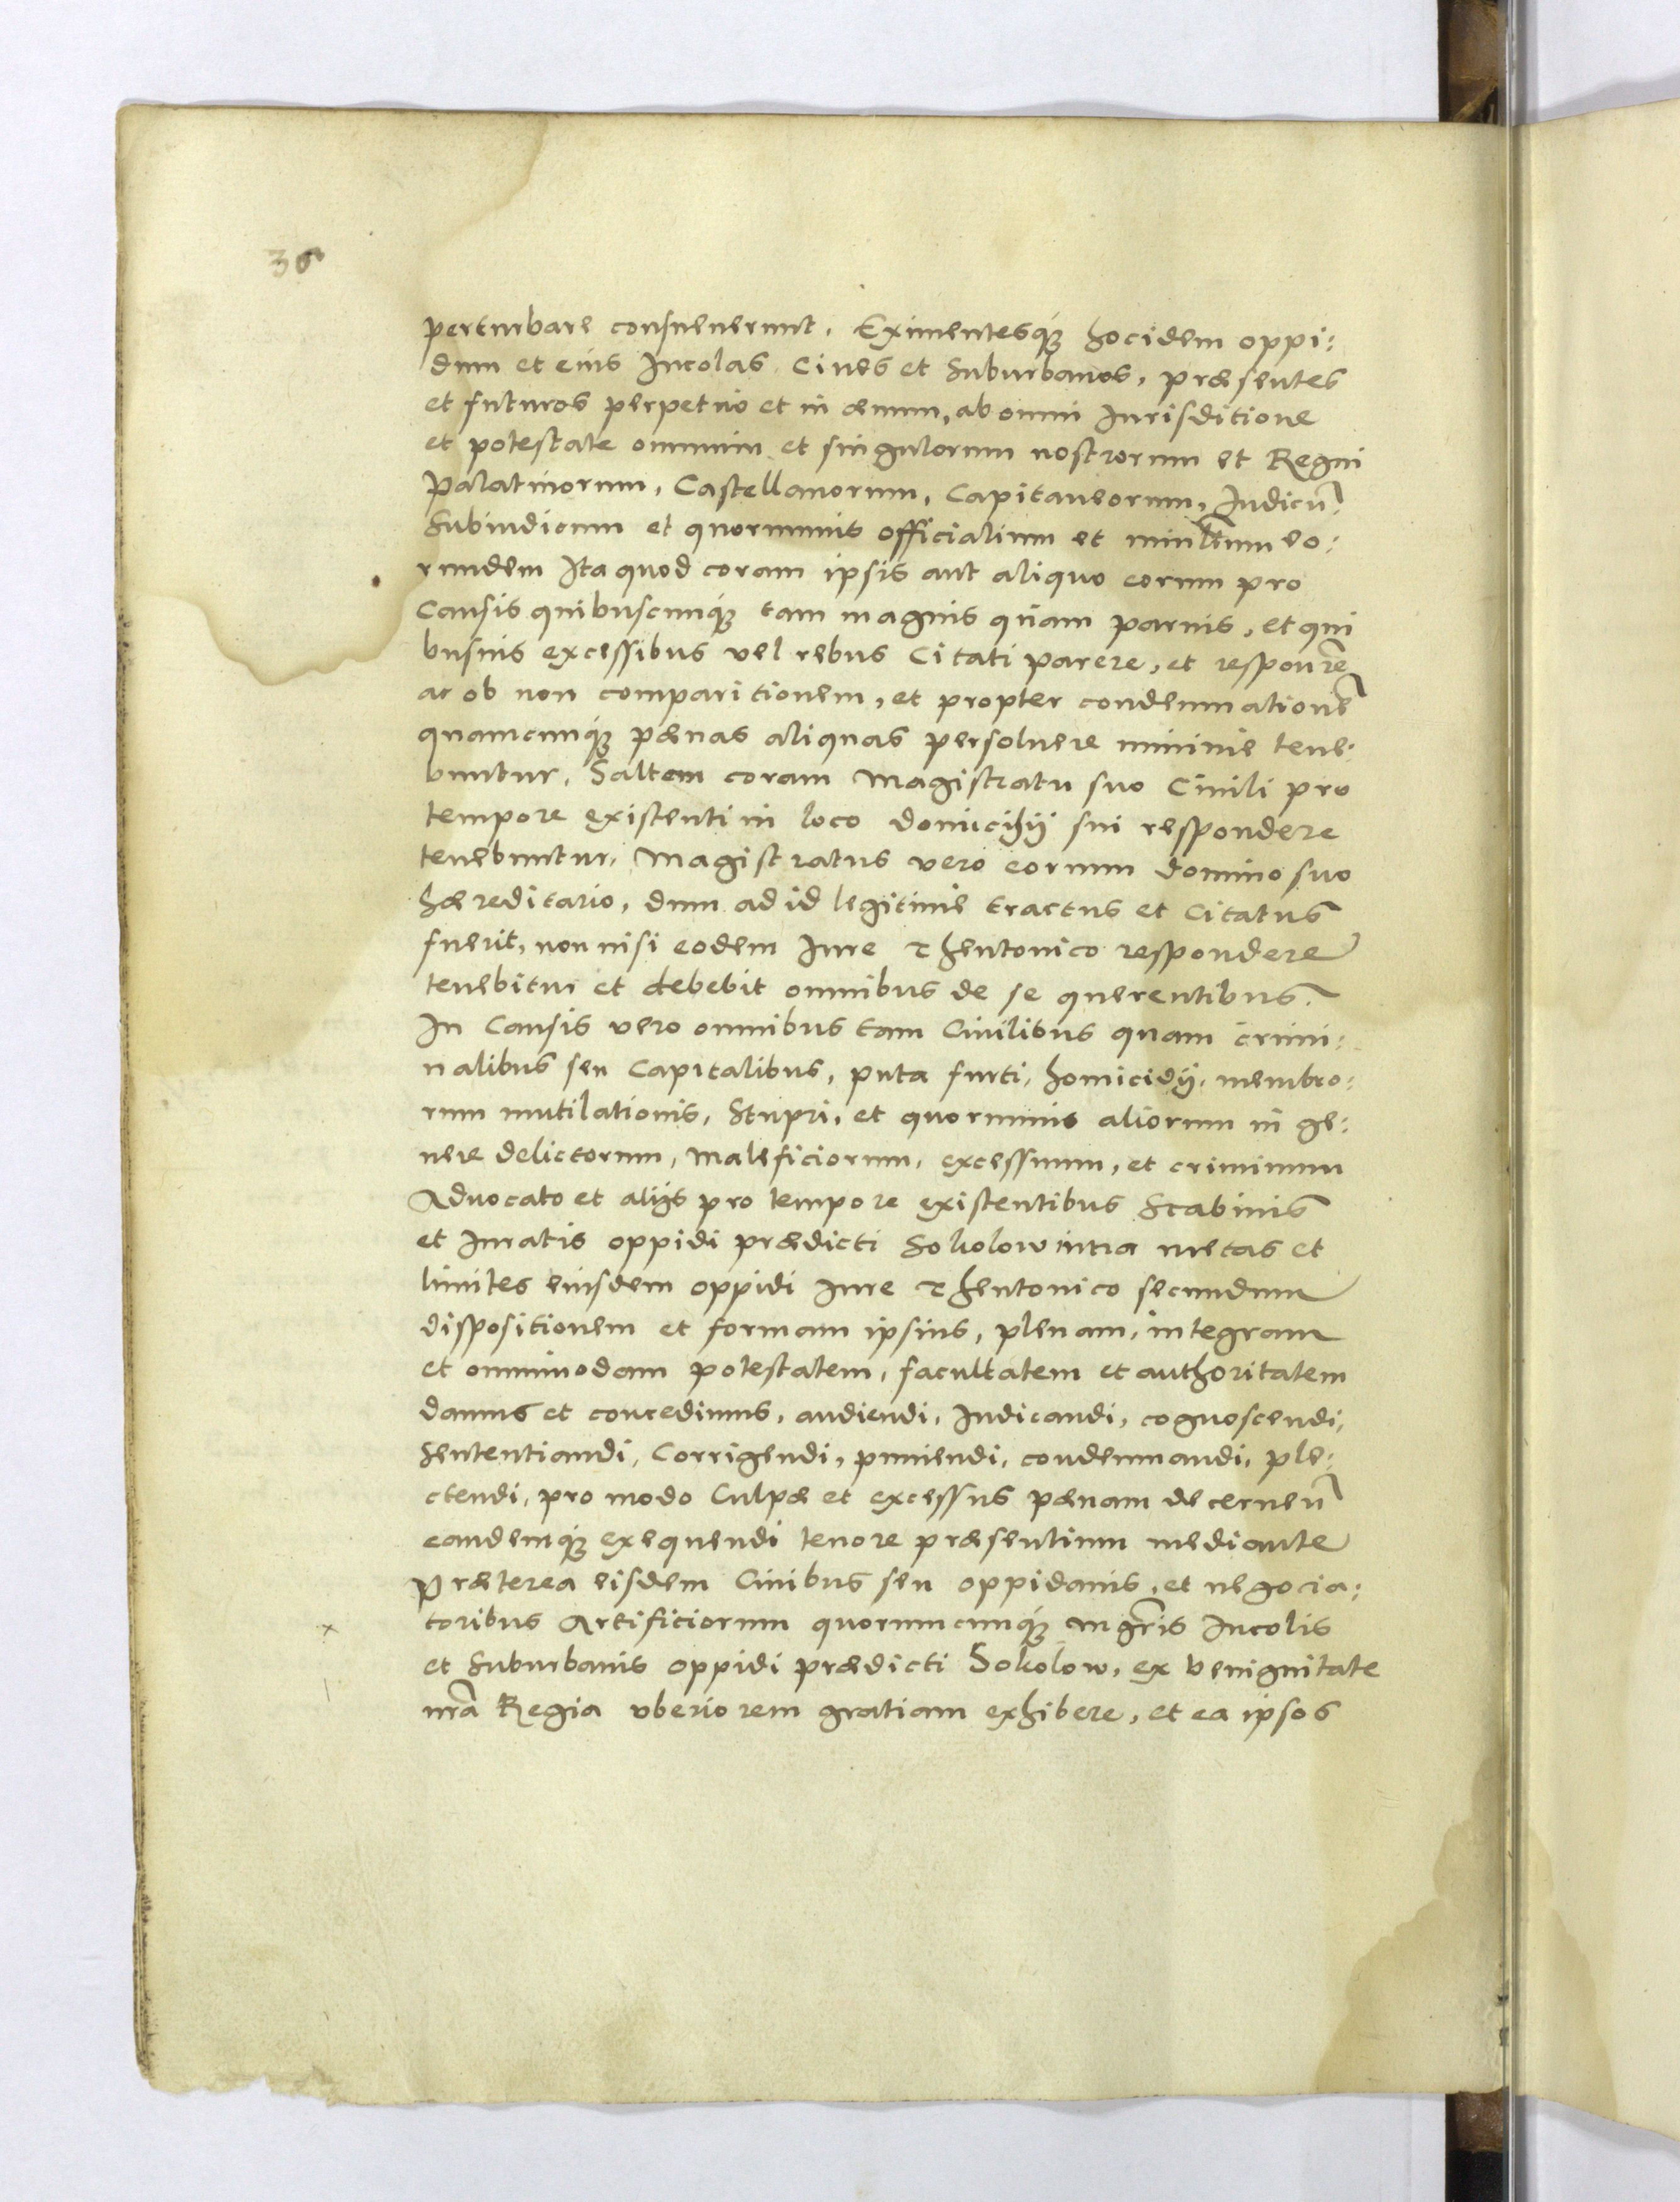 36
perturbare consueuerunt. Eximentesq́ue hocidem oppi:
dum et eius Incolas Ciues et Suburbanos, præsentes
et futuros perpetuo et in æuum, ab omni Iurisditione
et potestate omnium et singulorum nostrorum et Regni
Palatinorum, Castellanorum, Capitaneorum, Iudicũ,
Subiudicum et quorumuis officialium et minrũm eo:
rundem Ita quod coram ipsis aut aliquo eorum pro
Causis quibuscunq́ue tam magnis quàm paruis, et qui
busuis excessibus vel rebus Citati parere, et responrẽ
ac ob non comparitionem, et propter condemnationẽ
quamcunq́ue pænas aliquas persoluere minimè tene:
buntur, Saltem coram Magistratu suo Ciuili pro
tempore existenti in loco domicilij sui respondere
tenebuntur, Magistratus verò eorum domino suo
hæreditario, dum ad id legitimè tractus et Citatus
fuerit, non nisi eodem Iure Theutonico respondere
tenebitur et debebit omnibus de se querentibus.
In Causis vero omnibus tam Ciuilibus quam crimi:
nalibus seu Capitalibus, puta furti, homicidij, membro:
rum mutilationis, Stupri, et quorumuis aliorum in ge:
nere delictorum, maleficiorum, excessuum, et criminum
Aduocato et alijs pro tempore existentibus Scabinis
et Iuratis oppidi prædicti Sokolow intra metas et
limites eiusdem oppidi Iure Theutonico secundum
dispositionem et formam ipsius, plenam, integram
et omnimodam potestatem, facultatem et authoritatem
damus et concedimus, audiendi, Iudicandi, cognoscendi,
Sententiandi, Corrigendi, puniendi, condemnandi, ple:
ctendi, pro modo Culpæ et excessus pænam decernen̄
eandemq́ue exequendi tenore præsentium mediante
Præterea eisdem Ciuibus seu oppidanis, et negocia:
toribus Artificiorum quorumcunq́ue mgr̃is Incolis
et Suburbanis oppidi prædicti Sokolow, ex benignitate
nrã Regia vberiorem gratiam exhibere, et ea ipsos